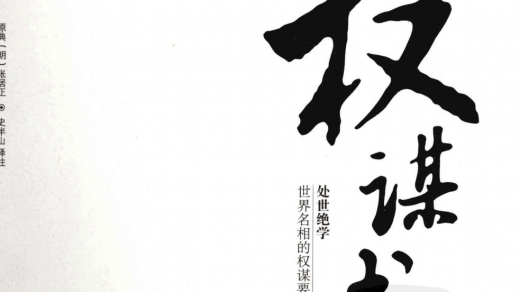 权谋
处世绝学
世界名相的权谋要
原典(明)张居正 ◎ 史半山 译注